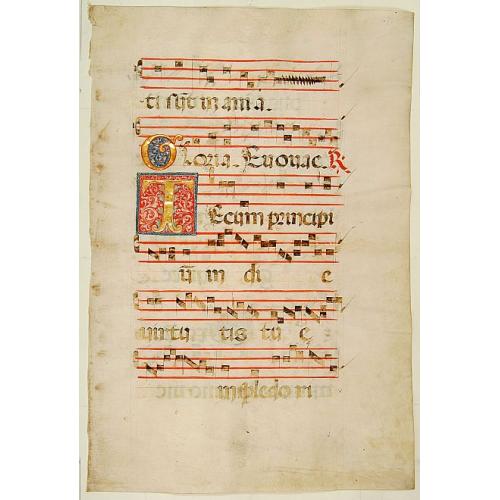 ti sūt in aīa.
Gloria. Euouae. R.
Tecum principi
ū in di e
uirtu tis tu e
in splēdo ri